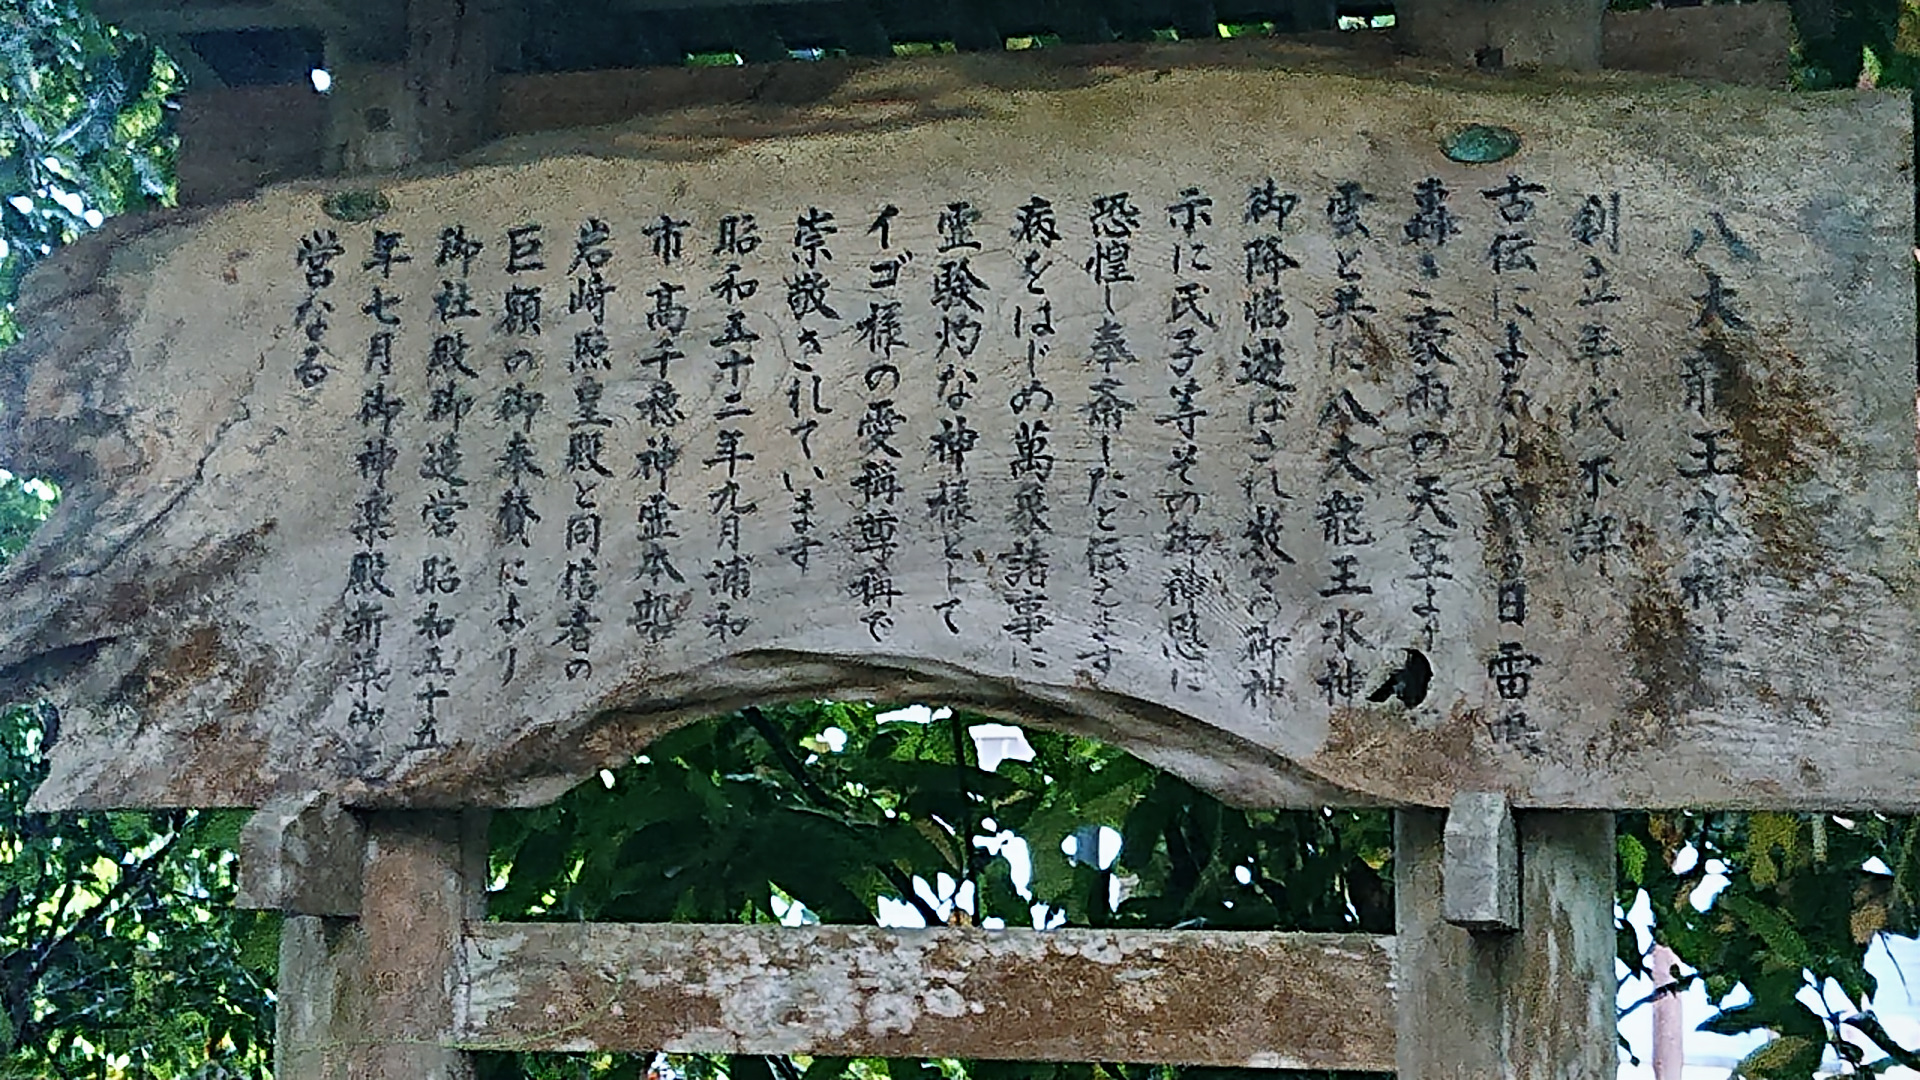 八大龍王水神社
創立年代不詳
古伝によると或る日雷鳴
轟き豪雨の天空より
雲と共に八大龍王水神
御降臨遊ばされ数々の御神
示に氏子等その御神恩に
恐惶し奉斎したと伝えます
病をはじめ萬般諸事に
霊験灼な神様として
イゴ様の愛称尊称で
崇敬されています
昭和五十二年九月浦和
市高千穂神霊本部
岩崎照皇殿と同信者の
巨額の御奉賛により
御社殿御造営昭和五十五
年七月御神楽殿新築御造
営なる